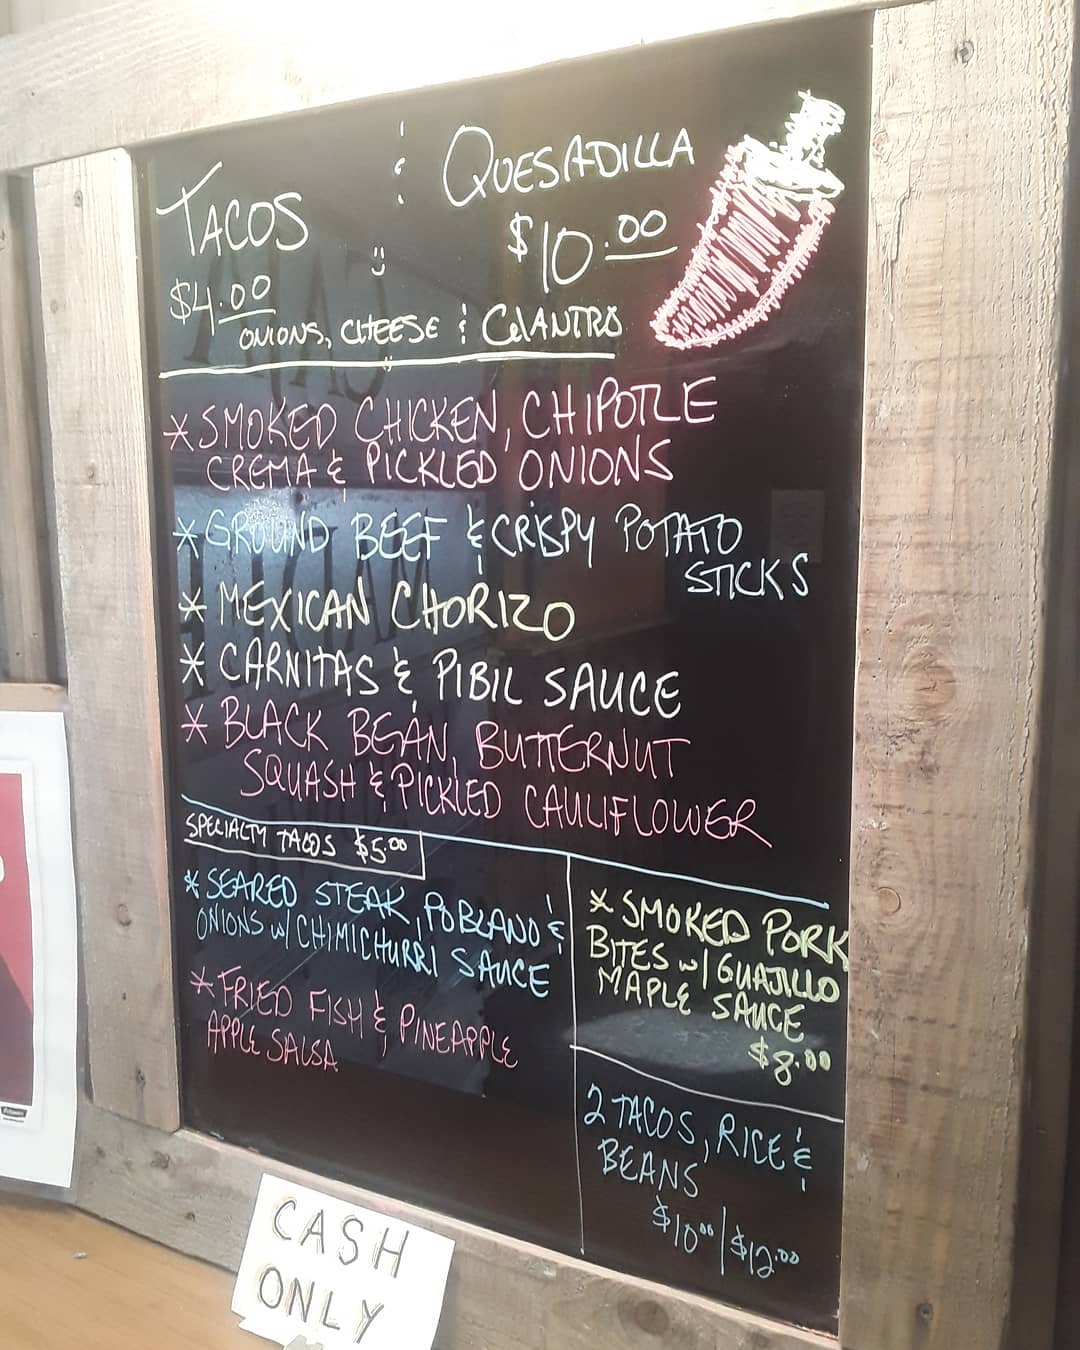 TACOS & QUESADILLA
$4.00 $10.00
ONIONS, CHEESE & CILANTRO
* SMOKED CHICKEN, CHIPOTLE
CREMA & PICKLED ONIONS
* GROUND BEEF & CRISPY POTATO
STICKS
* MEXICAN CHORIZO
* CARNITAS & PIBIL SAUCE
* BLACK BEAN, BUTTERNUT
SQUASH & PICKLED CAULIFLOWER
SPECIALTY TACOS $5.00
* SEARED STEAK, POBLANO &
ONIONS w/ CHIMICHURRI SAUCE
* FRIED FISH & PINEAPPLE
APPLE SALSA
* SMOKED PORK
BITES w/ GUAJILLO
MAPLE SAUCE
$8.00
2 TACOS, RICE &
BEANS
$10.00/$12.00
CASH
ONLY